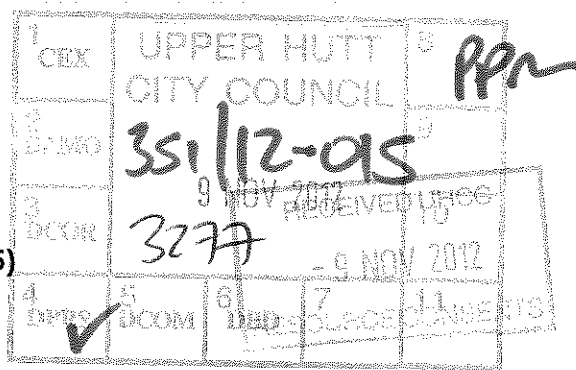 1 CEX UPPER HUTT CITY COUNCIL 8
PPM
351/12-015
9 NOV 2012
RECEIVED UHCC
3 DCOR 3277
- 9 NOV 2012
5)
4 5 DCOM 6 DBD 7 11